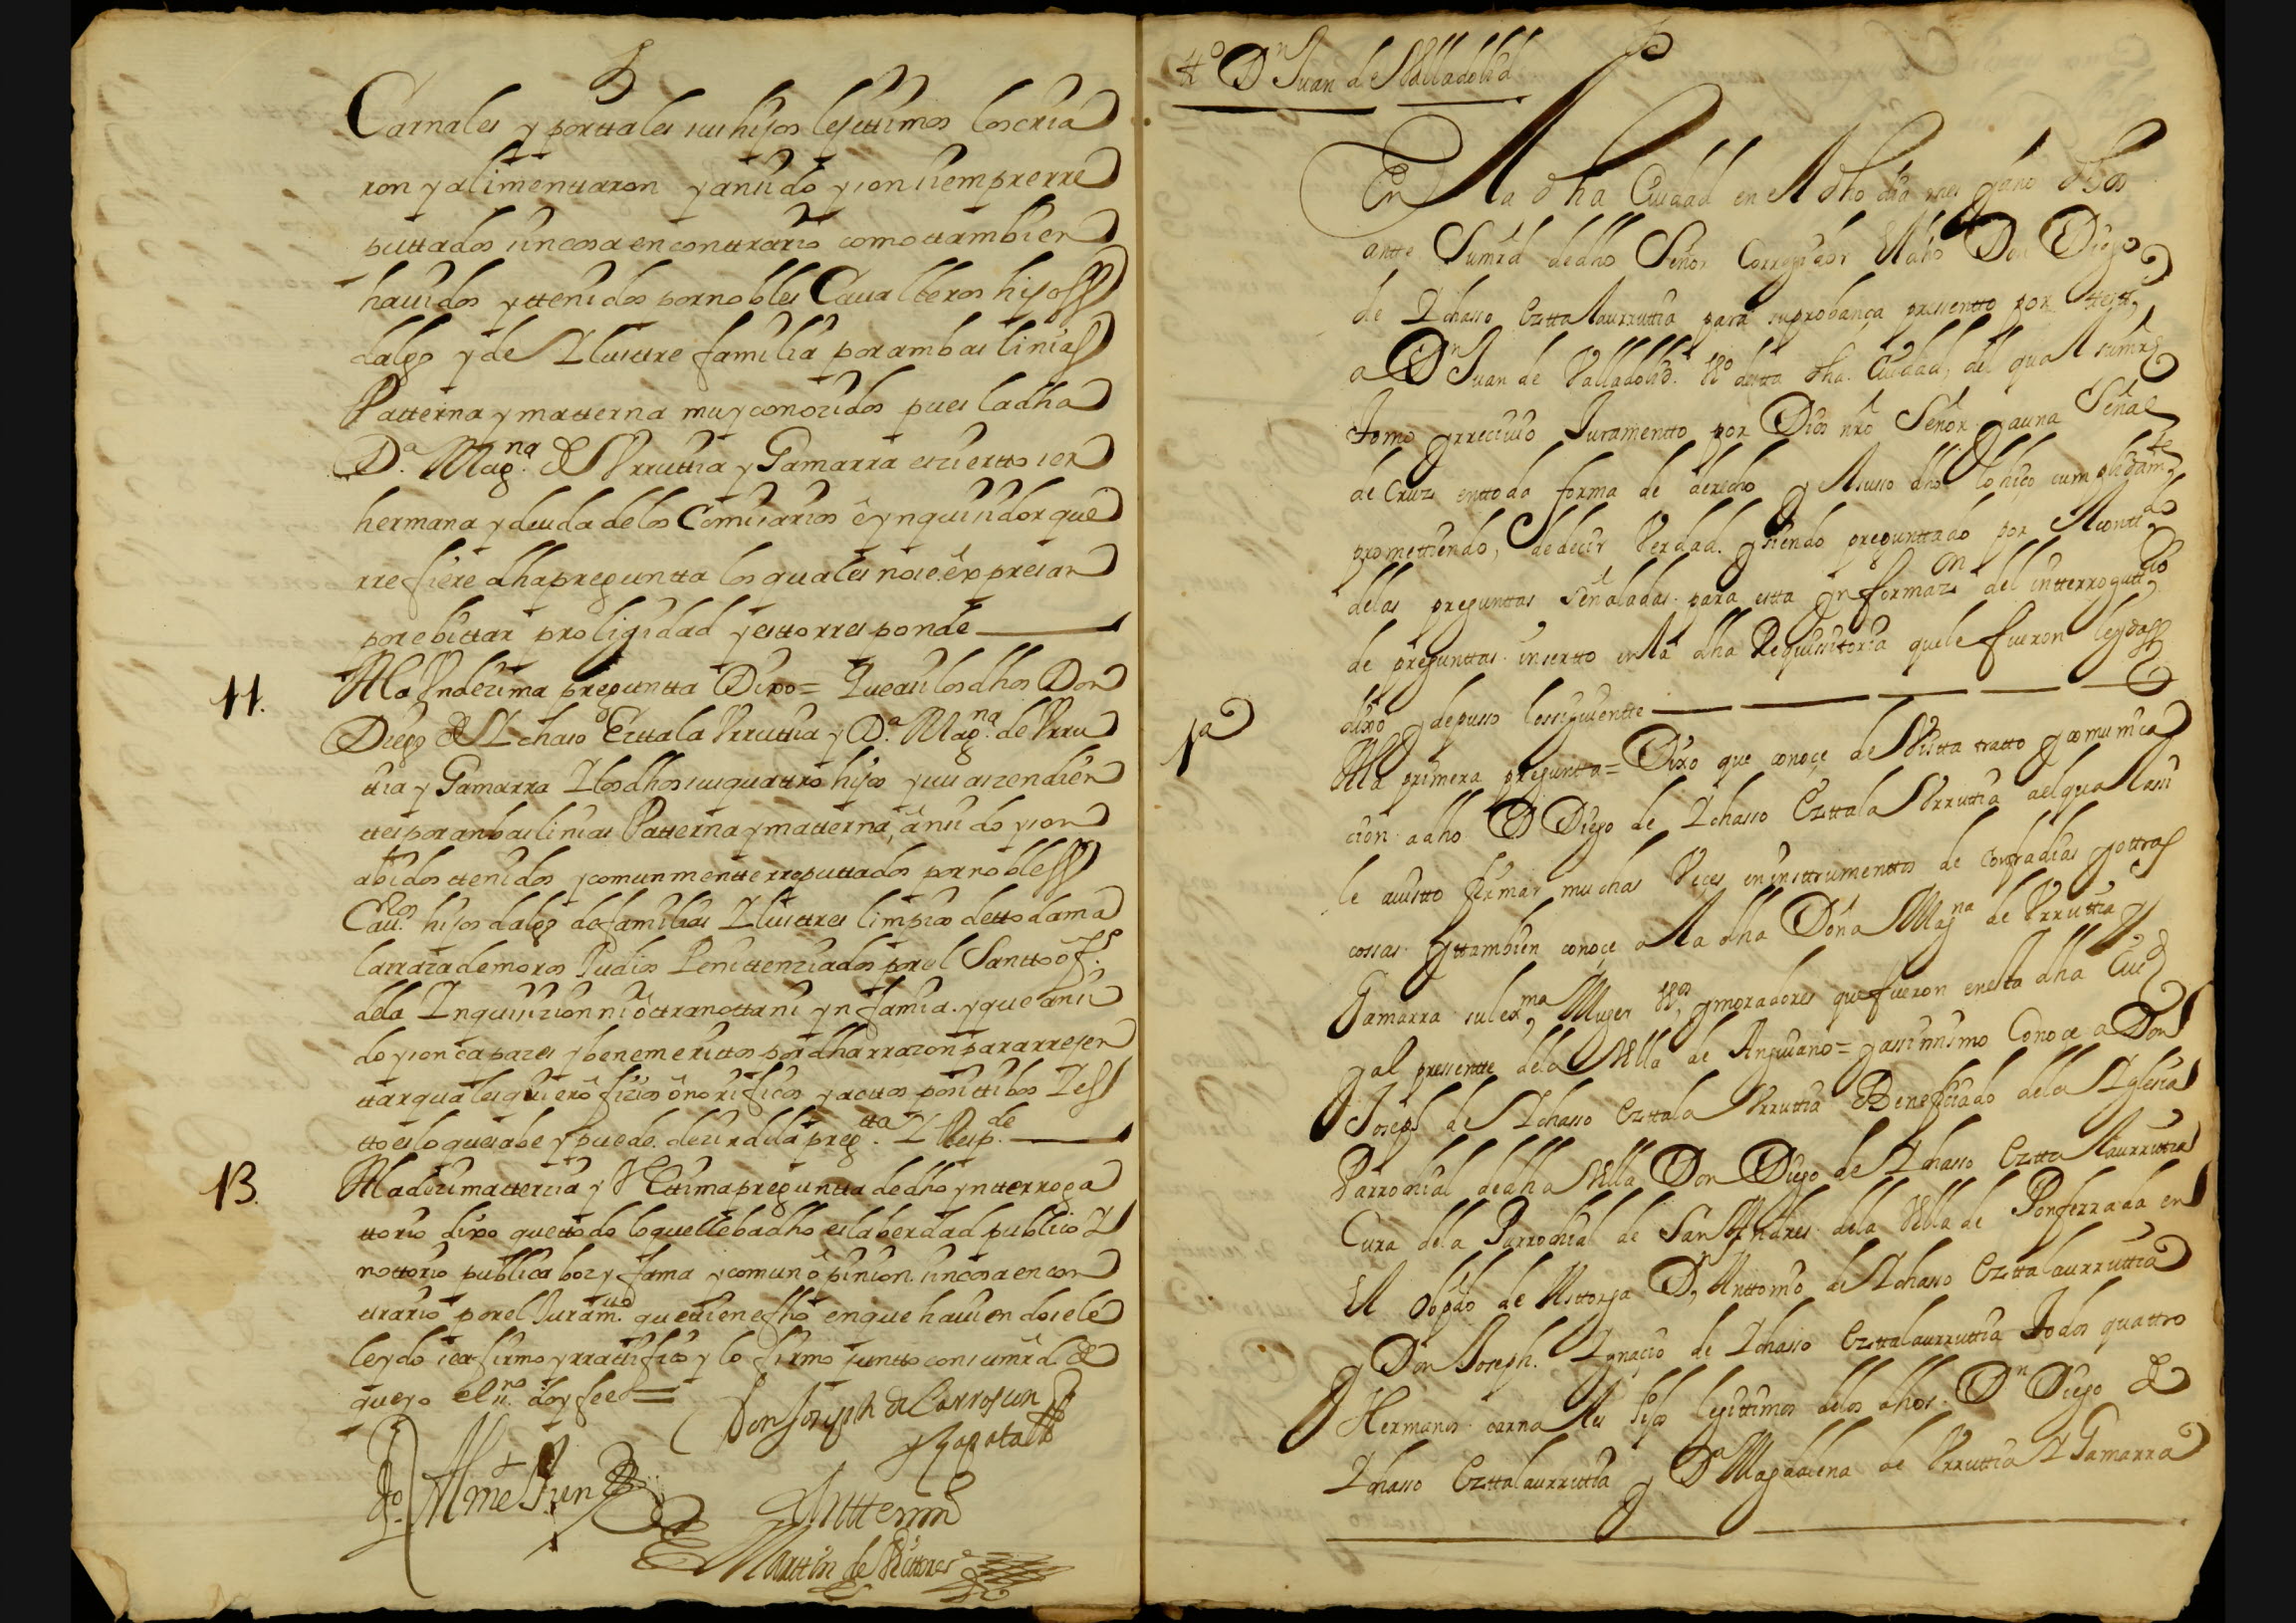 Carnales y por ttales sus hijos lejittimos los cria
ron y alimenttaron y an sido y son siempre rre
puttados sin cosa en conttrario como ttambien
hauidos y ttenidos por nobles Caualleros hijos
dalgo y de Ylusttre familia por ambas linias
Patterna y matterna muy conozidos pues la dha
Dª. Magna. de Vrruttia y Gamarra es zierto ser
hermana y deuda de los Comisarios e ynquisidor que
rrefiere dha preguntta los quales no se expresan
por ebittar proligidad y estto rresponde
11.
A la Vndezima preguntta Dixo = Que assi los dhos Don
Diego de Ychaso Ezttala Vrruttia y Dª. Magna. de Vrru
ttia y Gamarra Y los dhos sus quattro hijos y sus aszendien
ttes por anbas linias Patterna y matterna, an sido y son
abidos ttenidos y comunmentte rreputtados por nobles
Cauros. hijos dalgo de familias Ylusttres limpios de ttoda ma
la rraza de moros Judios Penittenziados por el Santto ofº.
de la Ynquisizion ni ottra notta ni ynfamia. y que an si
do y son capazes y benemerittos por dha rrazon para rrejen
ttar qualesquier ofizios onorificos y acttos posittibos Y es
tto es lo que sabe y puede dezir de la pregtta. Y Respde.
13.
A la dezima tterzia y Vlttima preguntta de dho ynterroga
ttorio dixo que ttodo lo que llleba dho es la berdad publico Y
nottorio publica boz y fama y comun opinion. sin cosa en con
ttrario por el Juramtto. que ttiene fho en que hauiendosele
leydo se afirmo y rrattifico y lo firmo juntto con su mrd. de
que yo el nro. doy fee =
Don Joseph de Carrosun
y Zapata
Antte mi
Marttin de Vittores
tº Dn Juan de Valladolid
En la dha Ciudad en el dho dia mes y año dhos
antte Su mrd de dho Señor Corregidor El dho Don Diego
de Ychasso Ezttalaurruttia para su probança pressentto por ttestigo
a Dn Juan de Valladolid. Vº destta dha. Ciudad, del qual su mrd
Tomo y rrecivio Juramentto por Dios nro Señor y a una Señal
de Cruz en ttoda forma de derecho y el suso dho lo hiço cumplidamte
promettiendo, de decir Verdad. y siendo preguntado por el conttdo
de las preguntas Señaladas para estta Ynformazon del intterrogattrio
de preguntas insertto en la dha Requisittoria que le fueron leydas
dixo y depusso lo ssiguientte
1ª
A la primera pregunta = Dixo que conoçe de Vistta tratto y comunica
cion a dho D Diego de Ychasso Ezttala Vrruttia al qual assi
le a visto firmar muchas Veçes en insttrumenttos de Confradias y ottras
cossas y ttambien conoçe a la dha Doña Magna de Vrruttia y
Gamarra su lexma Muger Vos, y moradores que fueron en esta dha Ciud
y al pressentte de la Villa de Anguiano = y assimismo Conoçe a Don
Joseph de Ychasso Ezttala Vrruttia Beneficiado de la Yglesia
Parrochial de dha Villa Don Diego de Ychasso Ezttalaurruttia
Cura de la Parrochial de San Andres de la Villa de Ponferrada en
El obpdo de Asttorga Dn Anttonio de Ychasso Ezttalaurruttia
y Don Joseph. Ygnacio de Ychasso Ezttalaurruttia Todos quattro
Hermanos carnales hijos legittimos de los dhos. Dn Diego de
Ychasso Ezttalaurruttia y Dª Magdalena de Vrruttia Y Gamarra